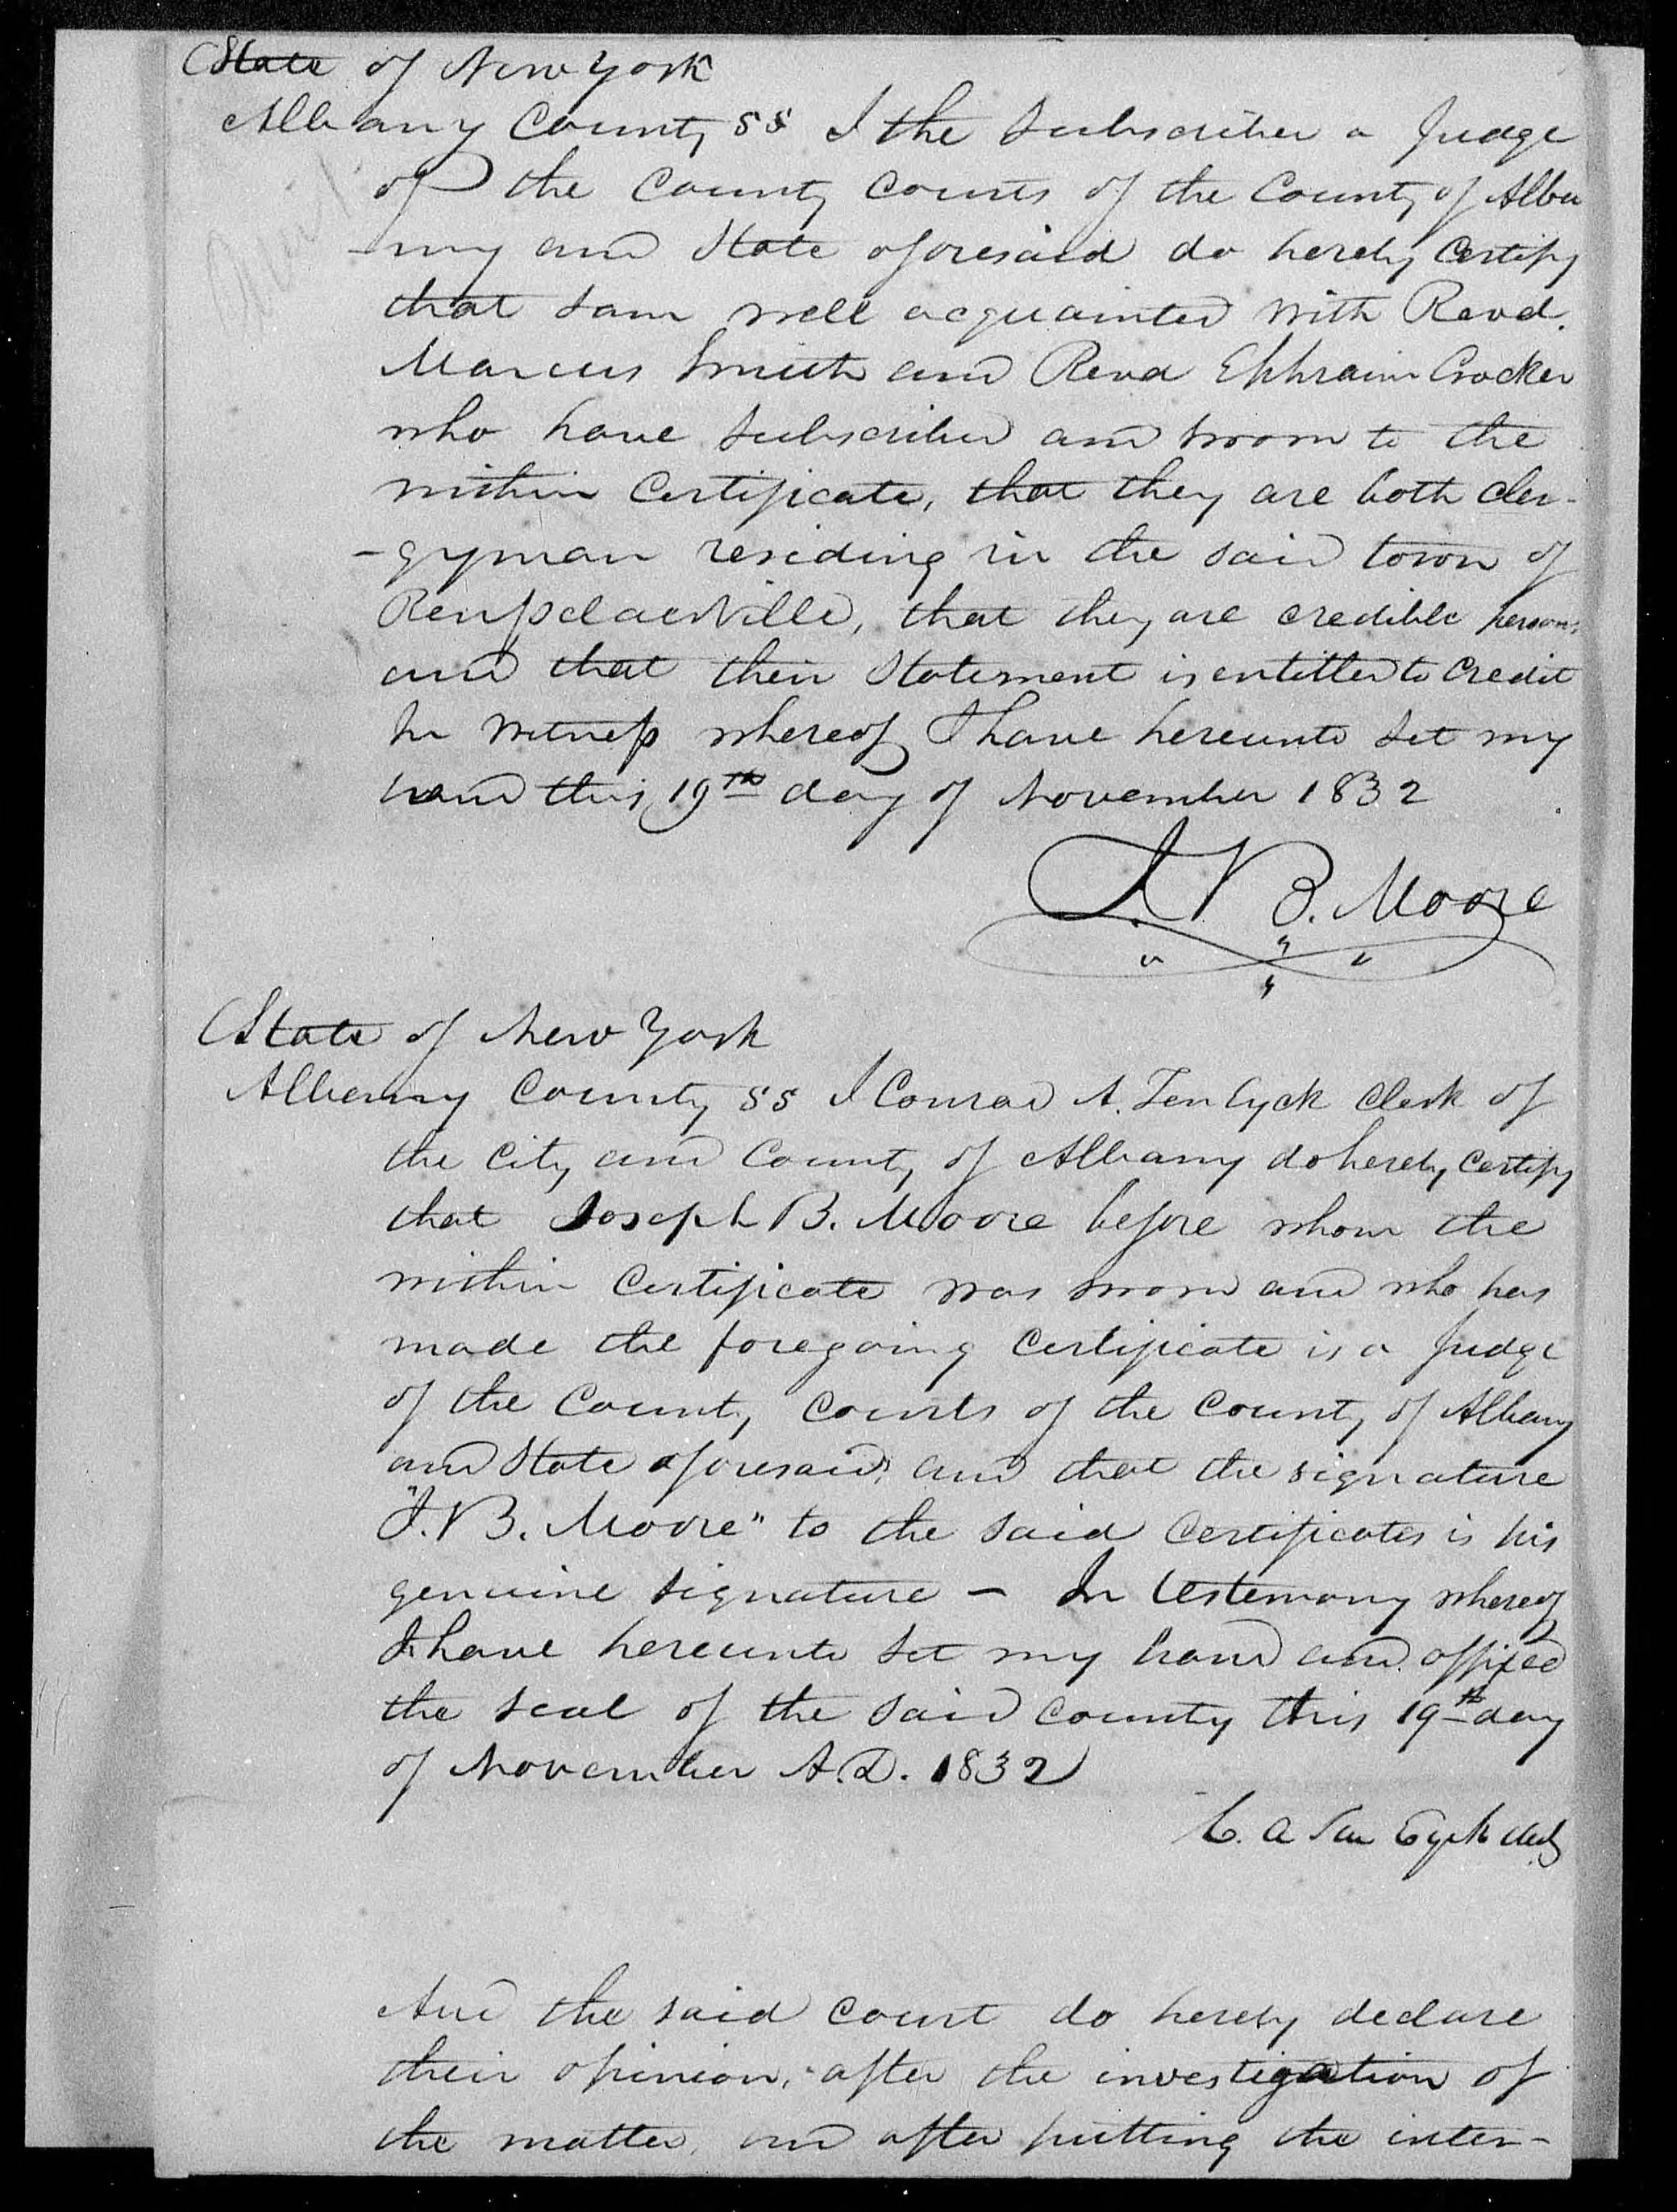 State of New York
Albany County ss I the Subscriber a Judge
of the County Courts of the County of Alba
-ny and State aforesaid do hereby Certify
that I am well acquainted with Revd.
Marcus Smith and Revd Ephraim Crocker
who have Subscribed and sworn to the
within Certificate, that they are both cler-
-gyman residing in the said town of
Rensselaerville, that they are credible persons
and that their Statement is entitled to Credit
In Witness whereof I have hereunto Set my
hand this 19th day of November 1832
J. B. Moore
State of New York
Albany County ss I Conrad A. Ten Eyck Clerk of
the City and County of Albany do hereby Certify
that Joseph B. Moore before whom the
within Certificate was sworn and who has
made the foregoing Certificate is a Judge
of the County Courts of the County of Albany
and State aforesaid, and that the signature
"J. B. Moore" to the said Certificates is his
genuine Signature – In testemony whereof
I have hereunto Set my hand and affixed
the seal of the said County this 19th day
of November A.D. 1832
C. A Ten Eyck Clerk
And the said Court do hereby declare
their opinion, after the investigation of
the matter, and after putting the inter-